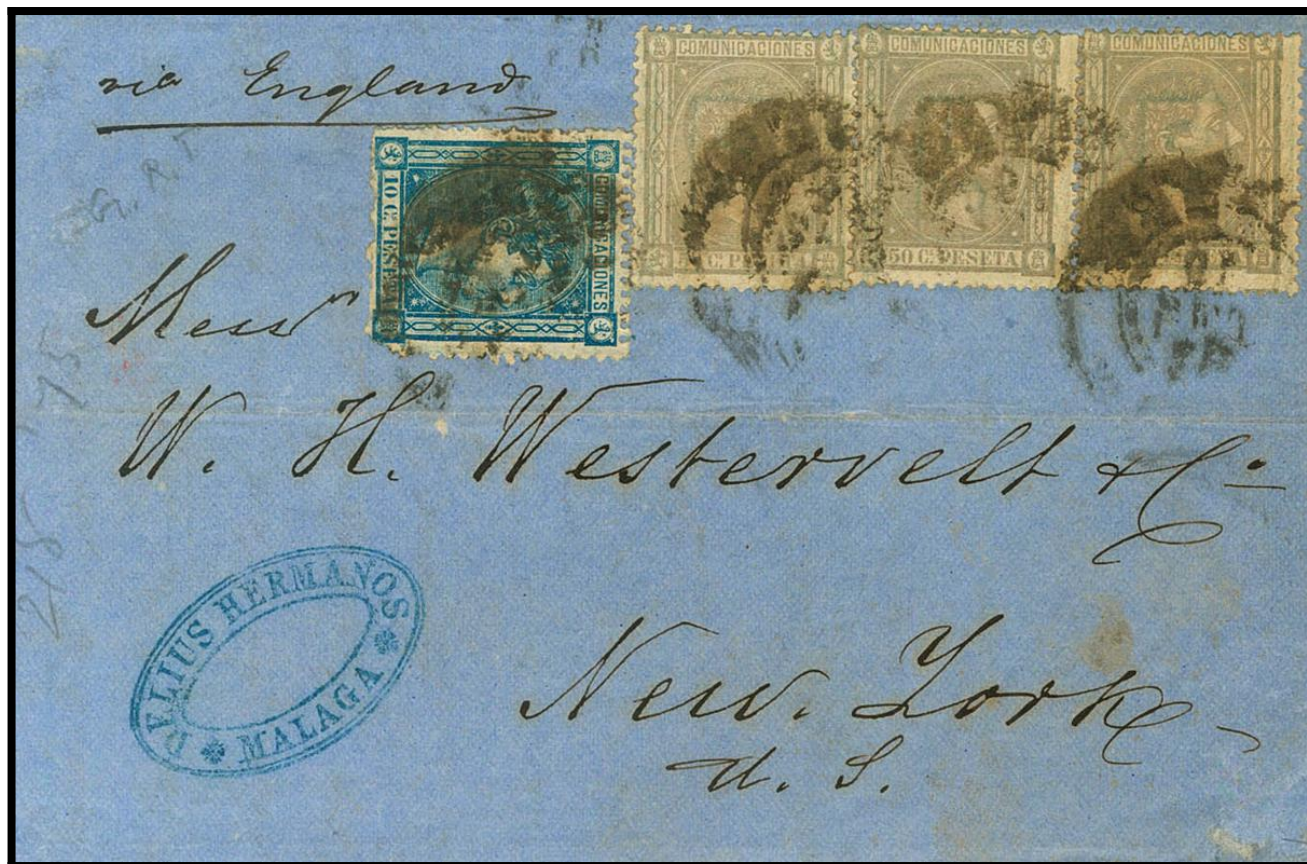 via England
COMUNICACIONES
COMUNICACIONES
COMUNICACIONES
50 C. PESETA
COMUNICACIONES
10 C. PESETA
Mess
W. H. Westervelt & Co.
New. York
U. S.
DELIUS HERMANOS
MALAGA